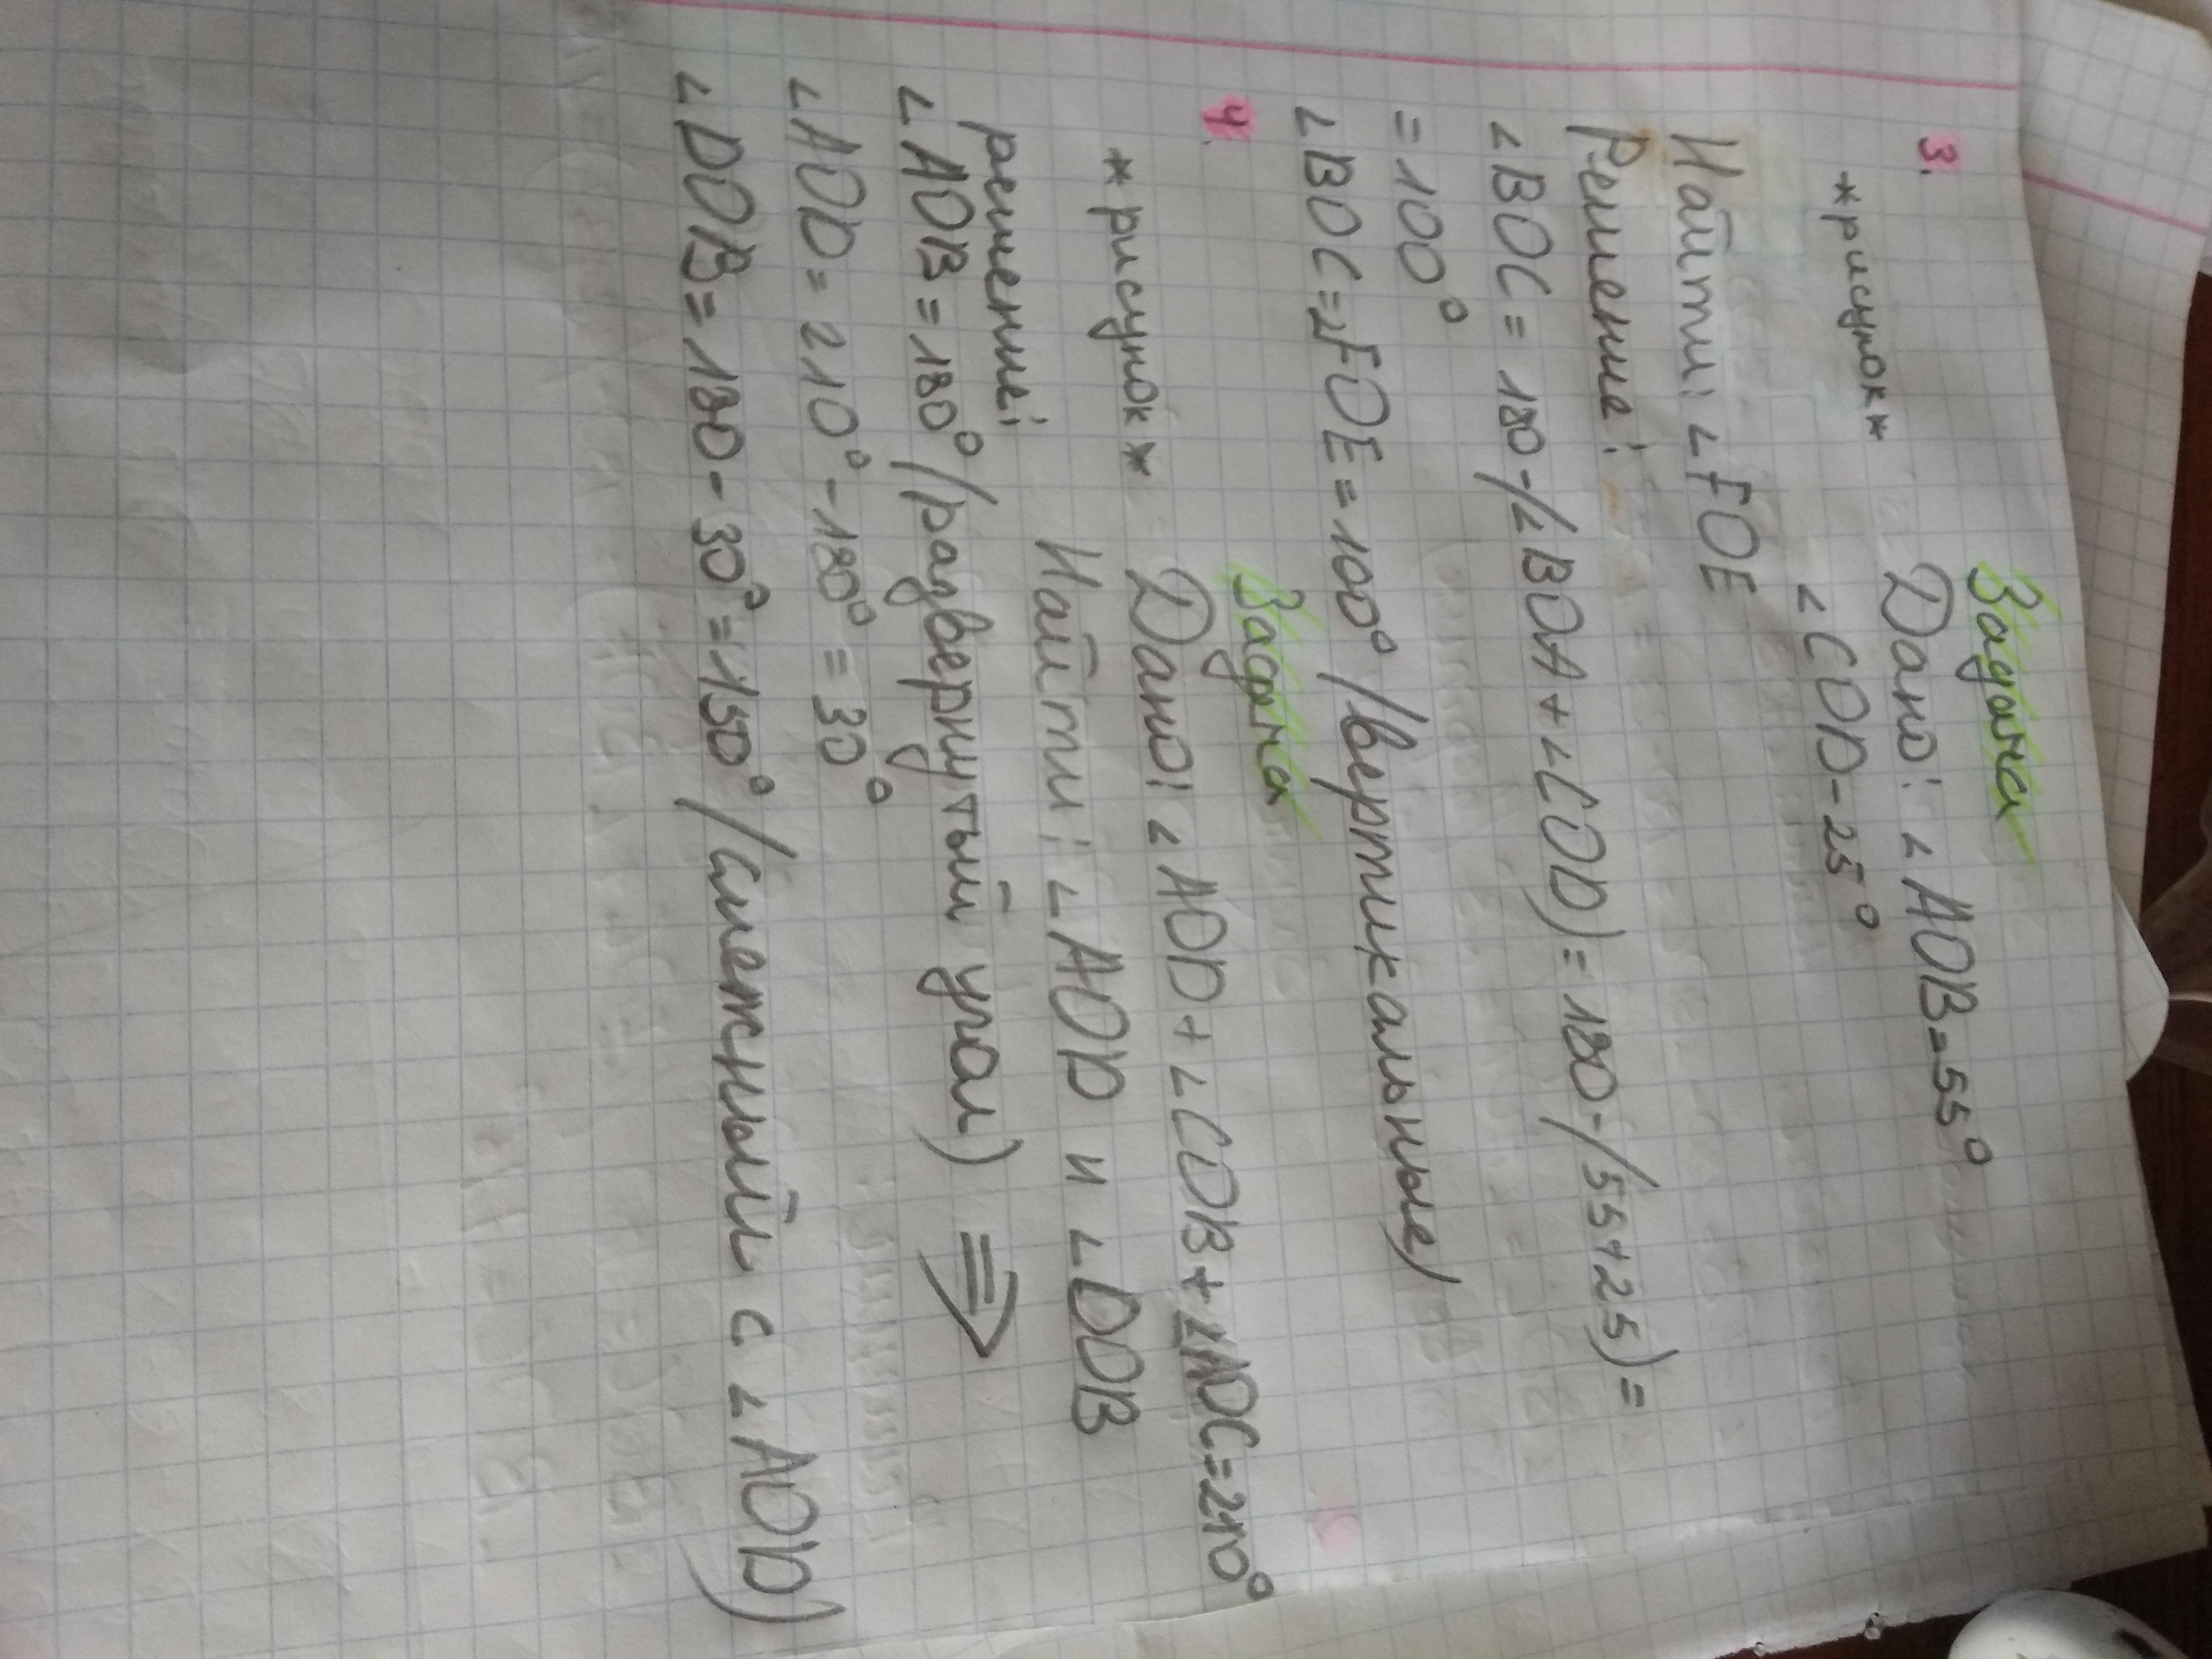 Задача
3.
*рисунок*
Дано: ∠AOB=55°
∠COD-25°
Найти: ∠FOE
Решение:
∠BOC = 180-(∠BOA+∠COD)=180-(55+25)=
=100°
∠BOC=∠FOE=100° (вертикальные)
Задача
4.
*рисунок*
Дано: ∠AOD+∠COB+∠AOC=210°
Найти: ∠AOD и ∠DOB
решение:
∠AOB=180° (развернутый угол) ⇒
∠AOD=210°-180°=30°
∠DOB=180-30°=150° (смежный с ∠AOD)